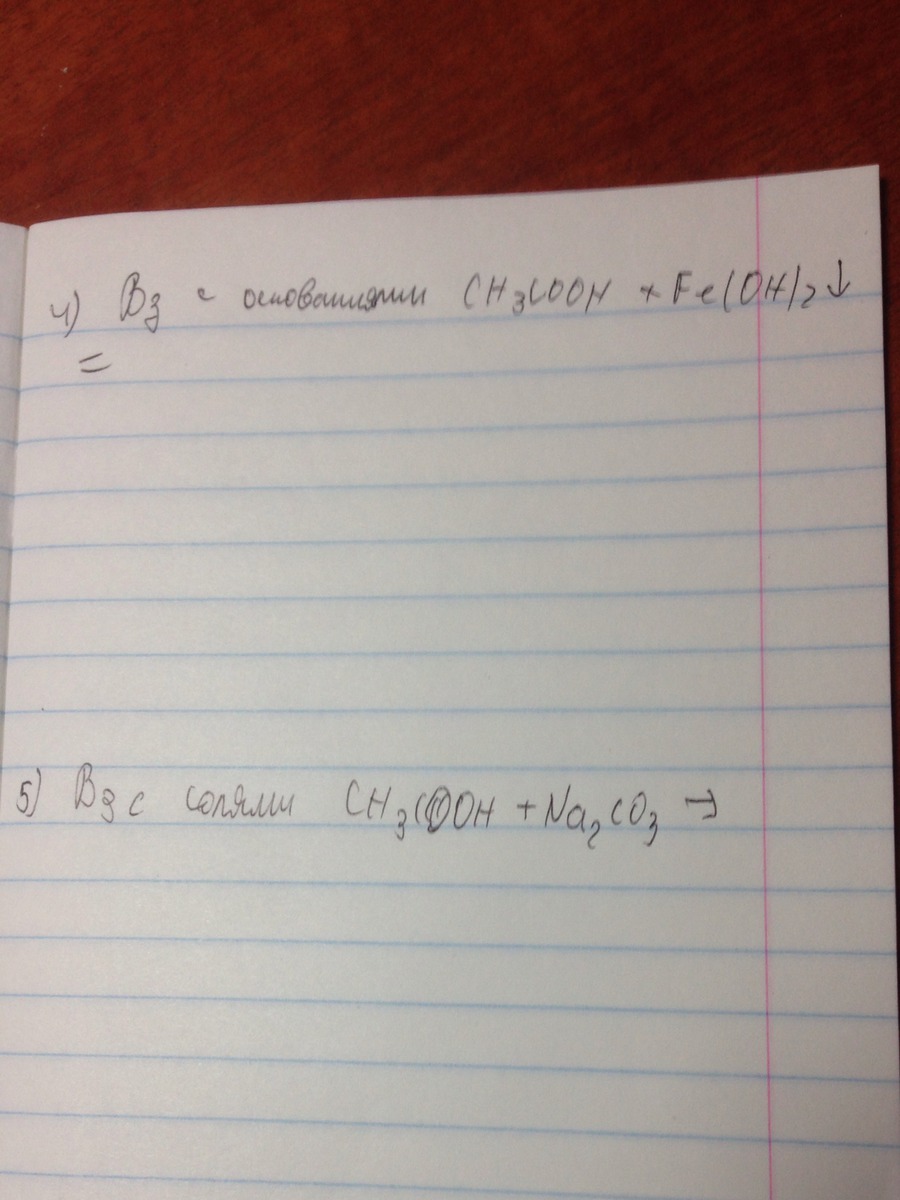 4) Вз с основаниями CH₃COOH + Fe(OH)₂↓
=
5) Вз с солями CH₃COOH + Na₂CO₃ →